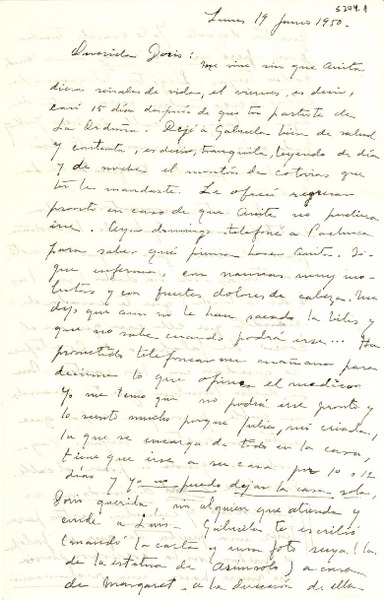 5204.1
Lunes 19 Junio 1950.-
Querida Doris:
Me vine sin que Anita
diera señales de vida, el viernes, es decir,
casi 15 días después de que tú partiste de
La Orduña. Dejé a Gabriela bien de salud
y contenta, es decir, tranquila, leyendo de día
y de noche el montón de cositas que
tú le mandaste. Le ofrecí regresar
pronto en caso de que Anita no pudiera
irse. Ayer domingo telefoneé a Pachuca
para saber qué piensa hacer Anita. Si-
gue enferma, con nauseas muy mo-
lestas y con fuertes dolores de cabeza. Me
dijo que aun no le han sacado la bilis y
que no sabe cuando podrá irse... Ha
prometido telefonearme mañana para
decirme lo que opina el médico.
Yo me temo que no podrá irse pronto y
lo siento mucho porque Julia, mi criada,
la que se encarga de todo en la casa,
tiene que irse a su casa por 10 o 12
días y yo no puedo dejar la casa sola,
Doris querida, sin alguien que atienda y
cuide a Luis. Gabriela te escribió
(mandó la carta y una foto suya) (la
de la estatura de Asunsolo) a casa
de Margaret - a la dirección de ella